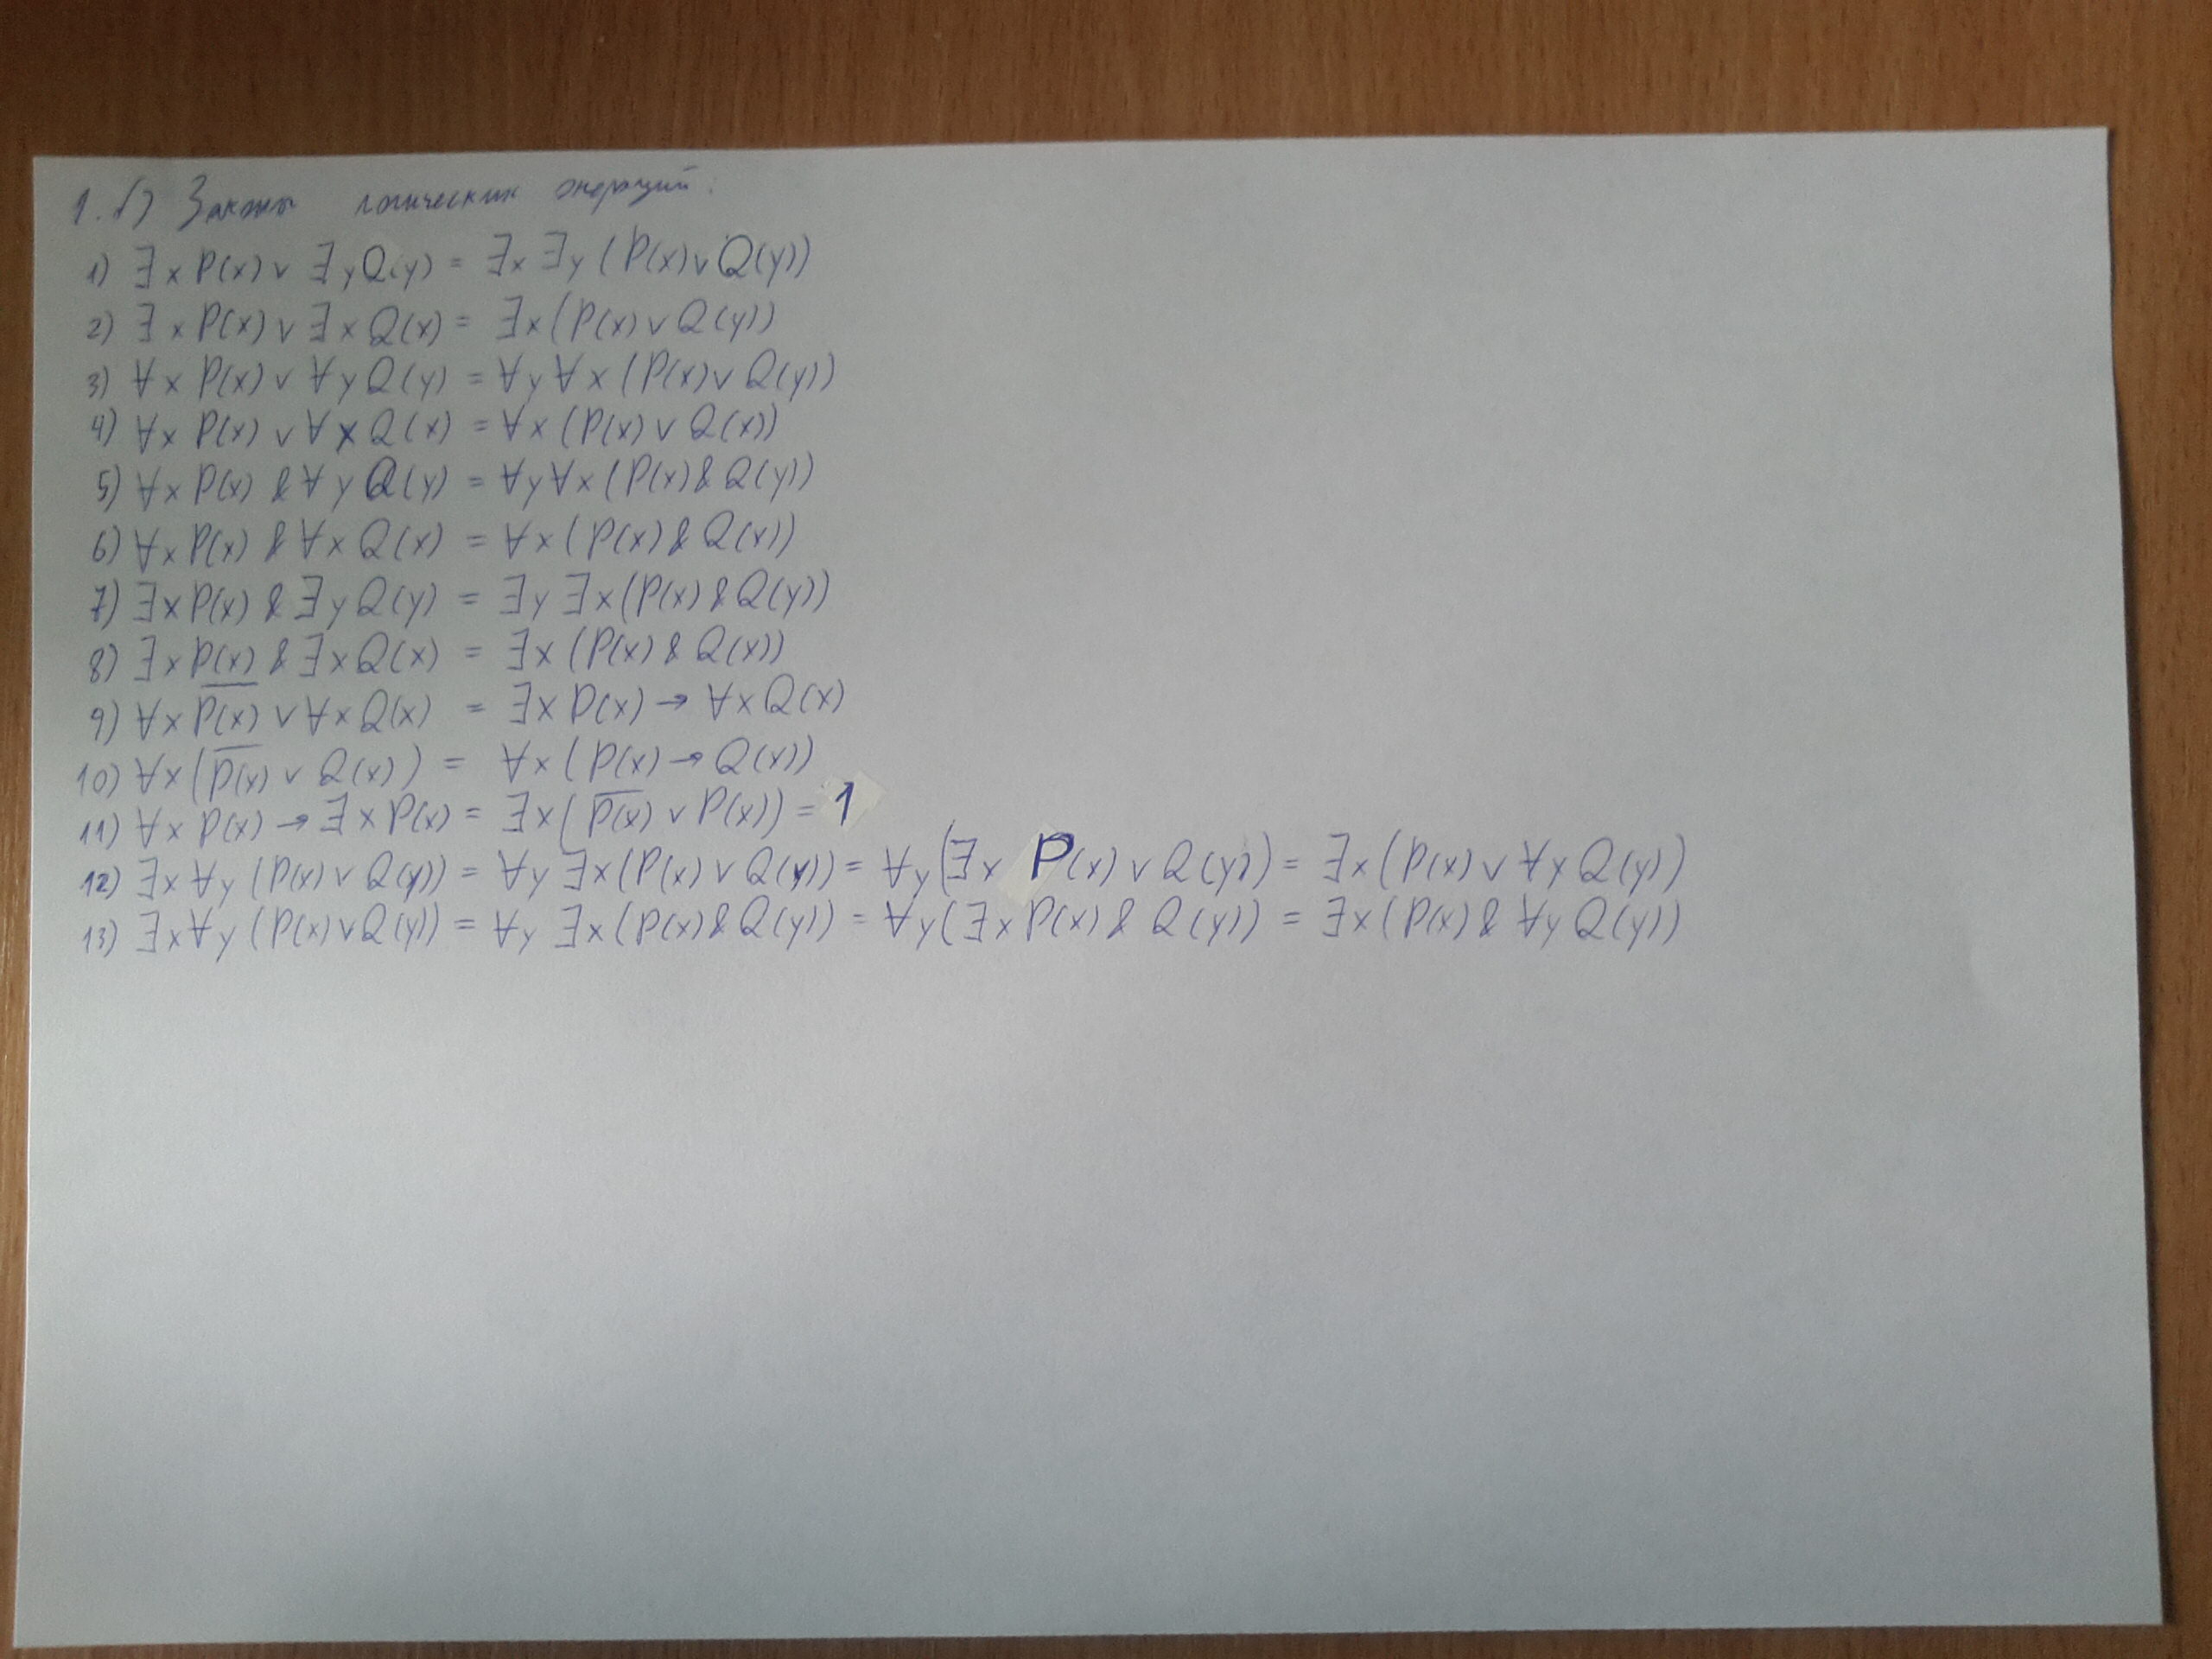 1. б) Законы логических операций:
1) ∃x P(x) ∨ ∃y Q(y) = ∃x ∃y (P(x) ∨ Q(y))
2) ∃x P(x) ∨ ∃x Q(x) = ∃x (P(x) ∨ Q(y))
3) ∀x P(x) ∨ ∀y Q(y) = ∀y ∀x (P(x) ∨ Q(y))
4) ∀x P(x) ∨ ∀x Q(x) = ∀x (P(x) ∨ Q(x))
5) ∀x P(x) & ∀y Q(y) = ∀y ∀x (P(x) & Q(y))
6) ∀x P(x) & ∀x Q(x) = ∀x (P(x) & Q(x))
7) ∃x P(x) & ∃y Q(y) = ∃y ∃x (P(x) & Q(y))
8) ∃x P(x) & ∃x Q(x) = ∃x (P(x) & Q(x))
9) ∀x P̅(̅x̅)̅ ∨ ∀x Q(x) = ∃x P(x) → ∀x Q(x)
10) ∀x (P̅(̅x̅)̅ ∨ Q(x)) = ∀x (P(x) → Q(x))
11) ∀x P(x) → ∃x P(x) = ∃x (P̅(̅x̅)̅ ∨ P(x)) = 1
12) ∃x ∀y (P(x) ∨ Q(y)) = ∀y ∃x (P(x) ∨ Q(y)) = ∀y (∃x P(x) ∨ Q(y)) = ∃x (P(x) ∨ ∀y Q(y))
13) ∃x ∀y (P(x) ∨ Q(y)) = ∀y ∃x (P(x) & Q(y)) = ∀y (∃x P(x) & Q(y)) = ∃x (P(x) & ∀y Q(y))